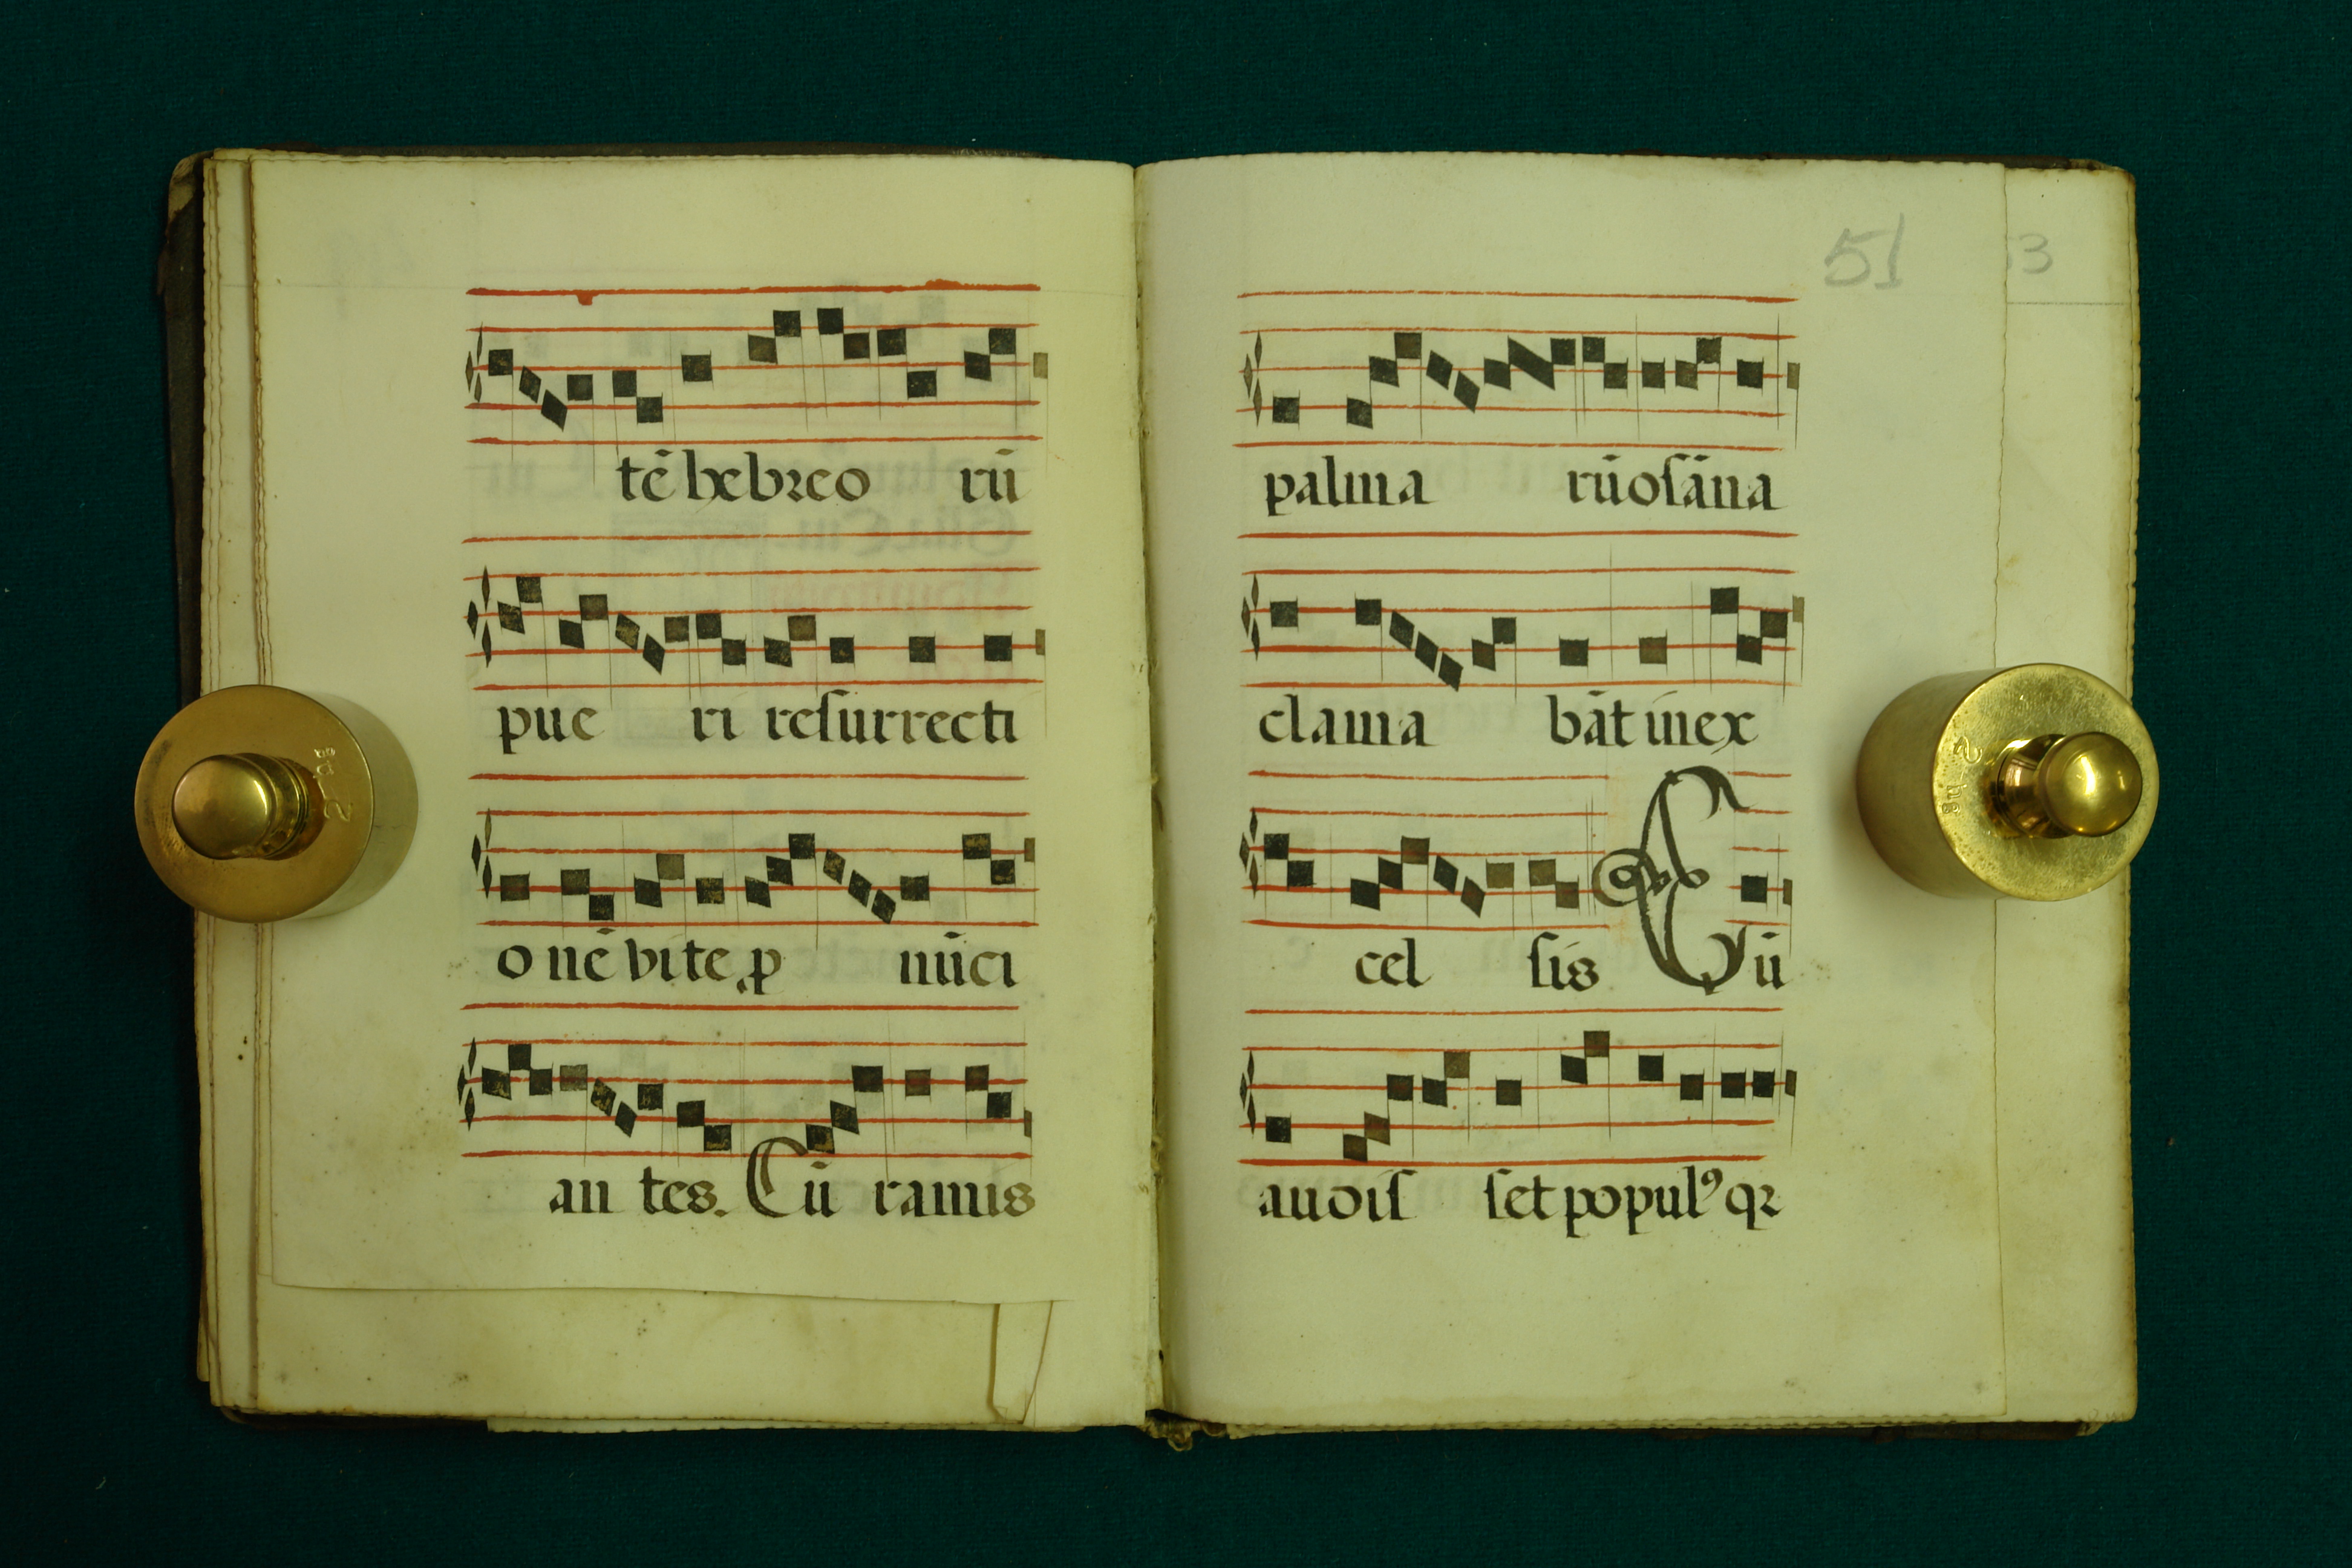 tē hebreo rū
pue ri resurrecti
o nē vite ꝓ nūci
an tes. Cū ramis
51
53
palma rū osāna
clama bāt in ex
cel sis Cū
audis set populꝰ qꝛ